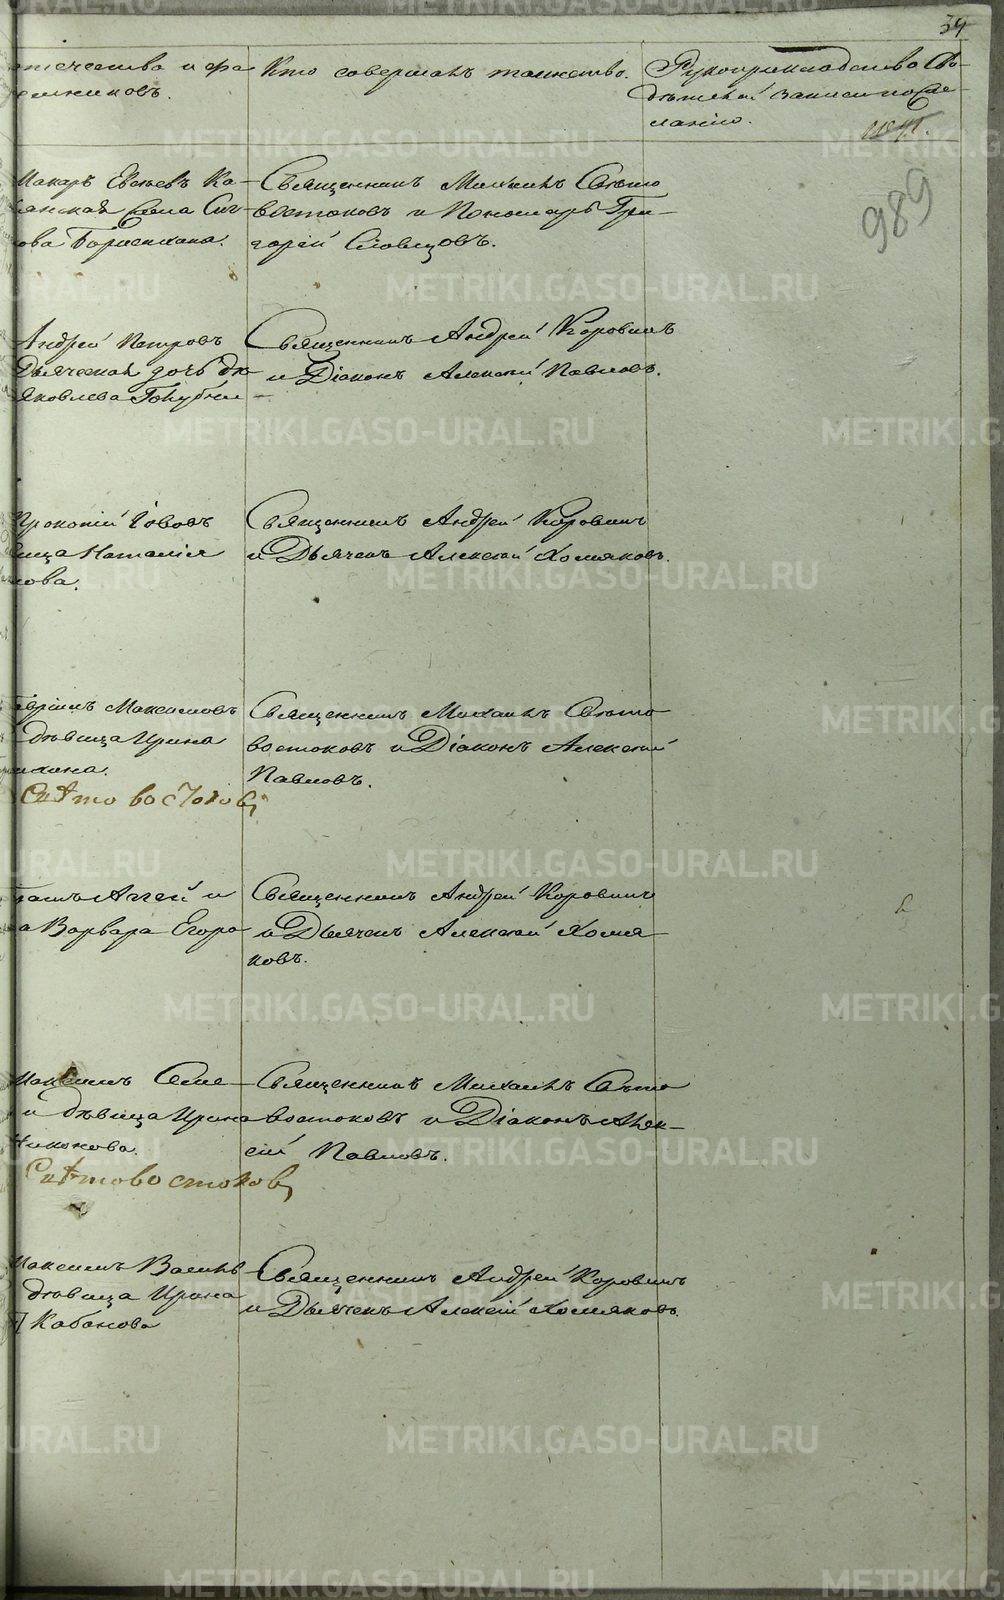 34
отечество и фа
емниковъ.
Кто совершалъ таинство.
Рукоприкладство сви-
дѣтелей записи по же-
ланію.
989
Макаръ Евсѣевъ Ка-
Бариснхина.
Священникъ Михаилъ Свѣто
востоковъ и Пономарь Гри-
горій Словцовъ.
Андрей Петровъ
Дьяческая дочь
Яковлева
Священникъ Андрей Коровинъ
и Діаконъ Алексѣй Павловъ.
Прокопій Іововъ
вица Наталія
нова.
Священникъ Андрей Коровинъ
и Дьячекъ Алексѣй Хомяковъ.
Максимовъ
дѣвица Ирина
ихина.
Свѣтовостоковъ
Священникъ Михаилъ Свѣто
востоковъ и Діаконъ Алексѣй
Павловъ.
Аггей и
а Варвара Егоро
Священникъ Андрей Коровинъ
и Дьячекъ Алексѣй Хомя
ковъ.
Максимъ Семе
и дѣвица Ирина
Никонова.
Свѣтовостоковъ
Священникъ Михаилъ Свѣто
востоковъ и Діаконъ Алек-
сѣй Павловъ.
Максимъ Василь
дѣвица Ирина
Кабанова
Священникъ Андрей Коровинъ
и Дьячекъ Алексѣй Хомяковъ.
METRIKI.GASO-URAL.RU